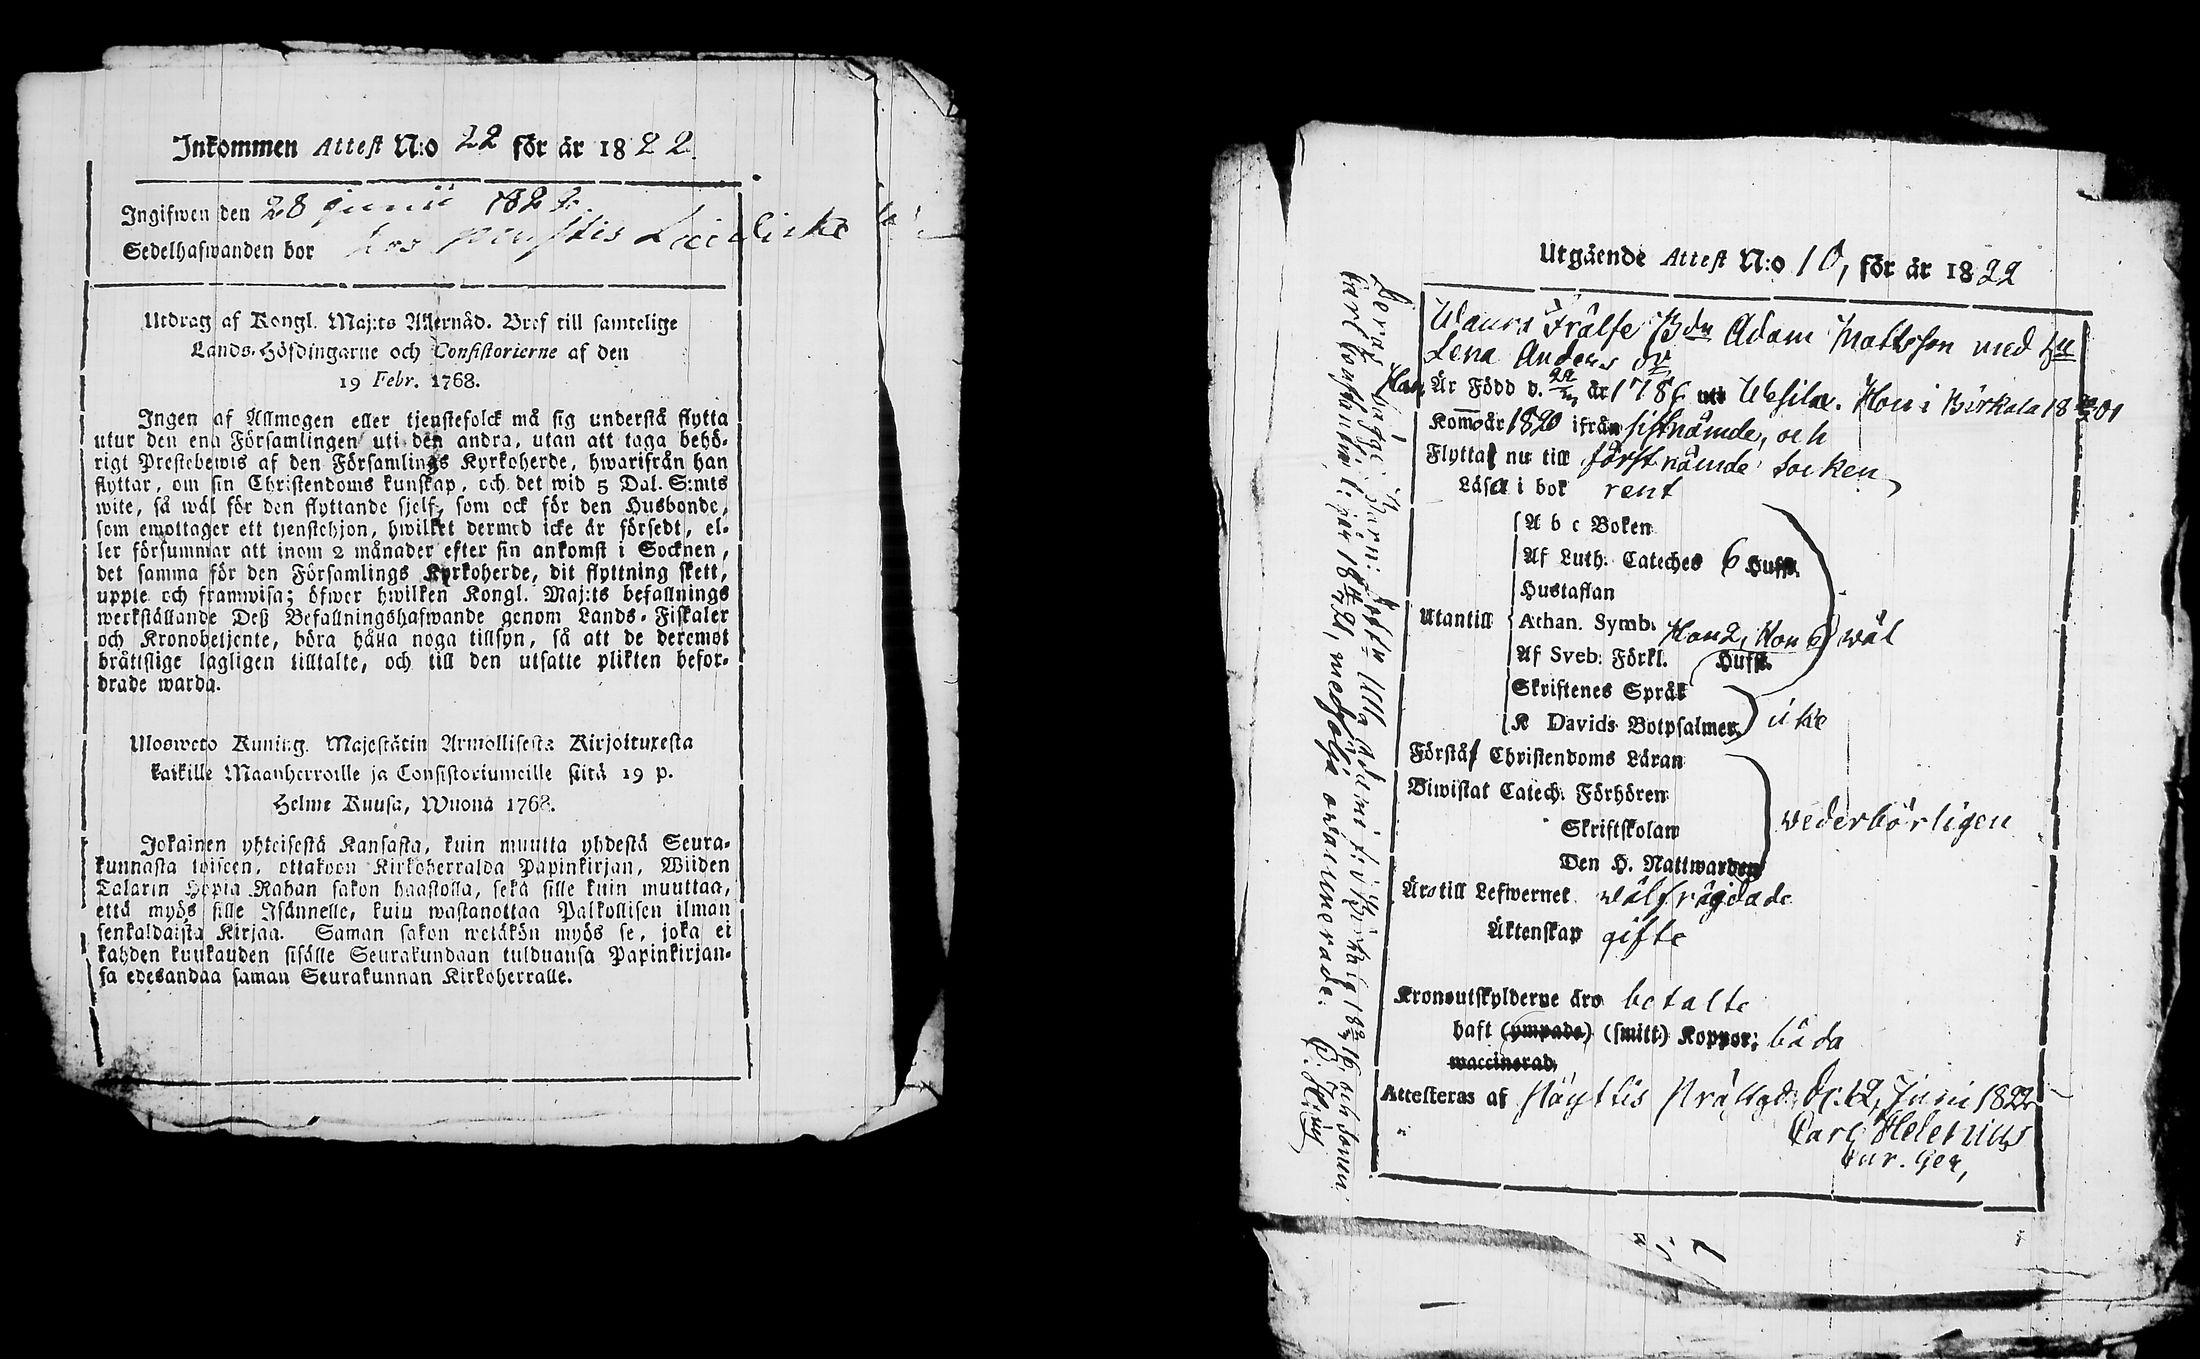 Inkommen Attest N:o 22 för år 1822.
Ingifwen den 28 junii 1822.
Sedelhafwanden bor hos
Utdrag af Kongl. Maj:ts Allernåd. Bref till samtelige
Lands-Höfdingarne och Consistorierne af den
19 Febr. 1768.
Ingen af Allmogen eller tjenstefolck må sig understå flytta
utur den ena Församlingen uti den andra, utan att taga behö-
rigt Prestebewis af den Församlings Kyrkoherde, hwarifrån han
flyttar, om sin Christendoms kunskap, och det wid 5 Dal. S:mts
wite, så wäl för den flyttande sjelf, som ock för den Husbonde,
som emottager ett tjenstehjon, hwilket dermed icke är försedt, el-
ler försummar att inom 2 månader efter sin ankomst i Socknen,
det samma för den Församlings Kyrkoherde, dit flyttning skett,
uppte och framwisa; öfwer hwilken Kongl. Maj:ts befallnings
werkställande Deß Befallningshafwande genom Lands-Fiskaler
och Kronobetjente, böra hålla noga tillsyn, så att de deremot
bråttslige lagligen tilltalte, och till den utsatte plikten befor-
drade warda.
Uloswеto Kuning. Majestätin Armollisesta Kirjoituxesta
kaikille Maanherroille ja Consistoriumeille siitä 19 p.
Helme Kuusa, Wuonä 1768.
Jokainen yhteisestä Kansasta, kuin muutta yhdestä Seura-
kunnasta toiseen, ottakoon Kirkoherralda Papinkirjan, Wiiden
Talarin Hopia Rahan sakon haastolla, sekä sille kuin muuttaa,
että myös sille Isännelle, kuin wastanottaa Palkollisen ilman
senkaldaista Kirjaa. Saman sakon wetäkön myös se, joka ei
kahden kuukauden sisälle Seurakundaan tulduansa Papinkirjan-
sa edesandaa saman Seurakunnan Kirkoherralle.
Utgående Attest N:o 10, för år 1822
Frälse Bdn Adam Mattsson med Hu
Lena Anders dr
Han Är Född d. år 1786 uti Wesila. Hon i Birkala
Kom år 1820 ifrån sistnämde, och
Flytta nu till förstnämde Socken
Läsa i bok rent
A b c Boken
Af Luth. Cateches 6 Hufst.
Hustaflan
Utantill Athan. Symb.
Af Sveb. Förkl. Han 2, Hon 6 Hufst. wäl
Skriftenes Språk
K Davids Botpsalmer icke
Förstå Christendoms Läran
Biwistat Catech. Förhören
Skriftskolan wederbörligen
Den H. Nattwarden
Äro till Lefwernet wälfrägdade
Äktenskap gifte
Kronoutskylderne äro betalte
haft (ympade) (smitt) Koppor; båda
waccinerad
Attesteras af Juni 1822
Carl Helenius